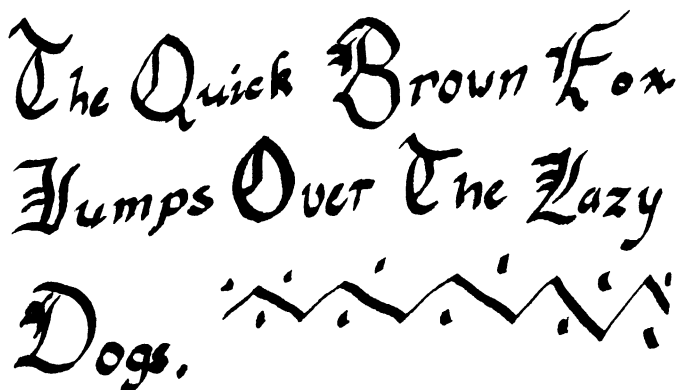 The Quick Brown Fox
Jumps Over The Lazy
Dogs.